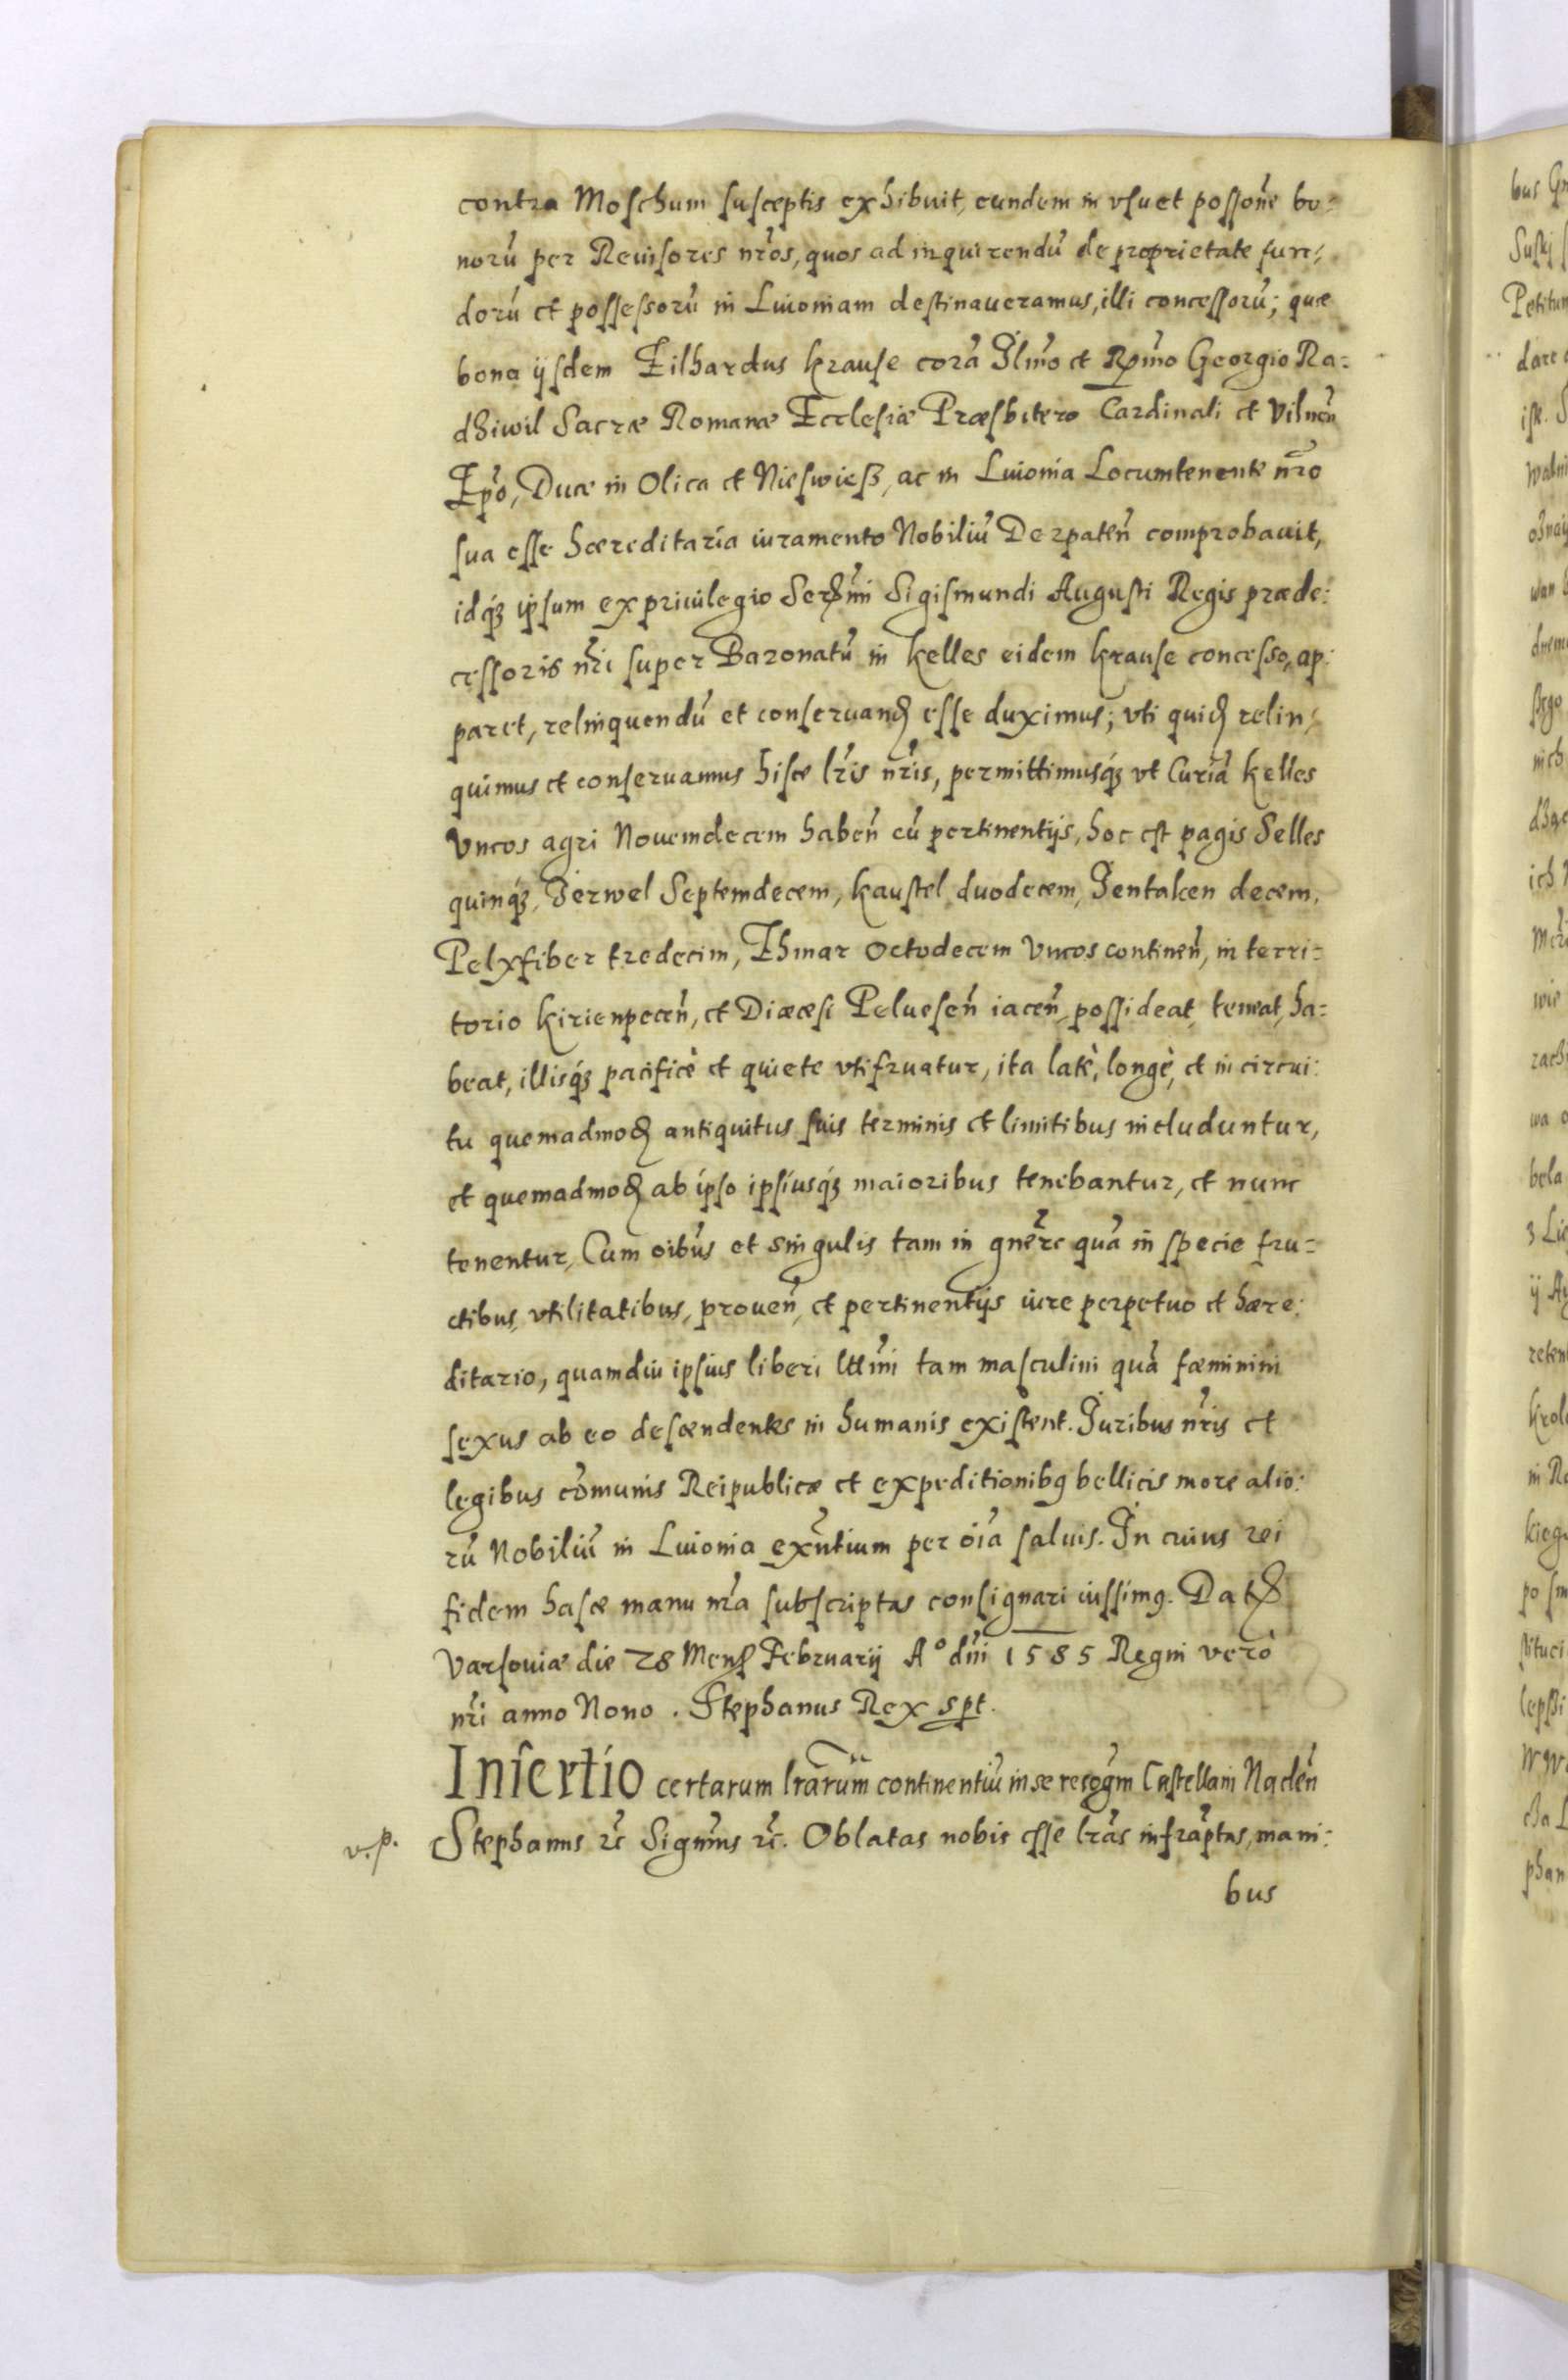 contra Moschum susceptis exhibuit, eundem in usu et possone bo:
norũ per Reuisores nros, quos ad inquirendũ de proprietate fun:
dorũ et possessorũ in Liuoniam destinaueramus, illi concessorũ; quæ
bona ijsdem Eilhardus Krause corã Illmo et Rmo Georgio Ra:
dziwil Sacræ Romanæ Ecclesiæ Præsbitero Cardinali et Vilnen
Epo, Duce in Olica et Nieswiesz, ac in Liuonia Locumtenente nro
sua esse hæreditaria iuramento Nobiliũ Derpaten comprobauit,
idq3 ipsum ex priuilegio Sermi Sigismundi Augusti Regis præde:
cessoris nri super Baronatũ in Kelles eidem Krause concesso, ap:
paret, relinquendũ et conseruand esse duximus; vti quid relin:
quimus et conseruamus hisce lris nris, permittimusq3 vt Curiã Kelles
Vncos agri Nouemdecem haben cũ pertinentijs, hoc est pagis Selles
quinq3, Jerwel Septemdecem, Kaustel duodecem, Jentaken decem,
Pelxfiber tredecim, Ihmar Octodecem Vncos continen, in terri:
torio Kirienpecen, et Diæcesi Peluesen iacen, possideat, teneat, ha:
beat, illisq3 pacificè et quiete vtifruatur, ita latè, longè, et in circui:
tu quemadmod antiquitus suis terminis et limitibus includuntur,
et quemadmod ab ipso ipsiusq3 maioribus tenebantur, et nunc
tenentur, Cum oibus et singulis tam in gnere quã in specie fru:
ctibus, vtilitatibus, prouen, et pertinentijs iure perpetuo et hære:
ditario, quamdiu ipsius liberi lttmi tam masculini quã fæminini
sexus ab eo descendentes in humanis existent. Juribus nris et
legibus cõmunis Reipublicæ et expeditionibg bellicis more alio:
rũ Nobiliũ in Liuonia exñtium per oia saluis. In cuius rei
fidem hasce manu nra subscriptas consignari iussimg. Dat
Varsouiæ die 28 Mens Februarij A° dni 1585 Regni verò
nri anno Nono. Stephanus Rex spt.
Insertio certarum lrarum continentiũ in se recogm Castellani Naclen
v. p. Stephanus rc Signms rc. Oblatas nobis esse lras infraptas, mani:
bus